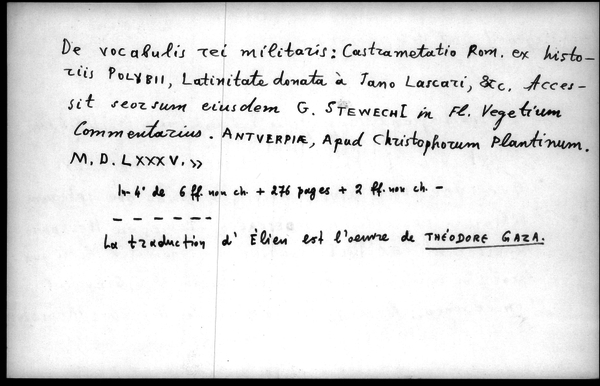 De vocabulis rei militaris: Castrametatio Rom. ex histo-
riis POLYBII, Latinitate donata à Jano Lascari, &c. Acces-
sit seorsum eiusdem G. STEWECHI in Fl. Vegetium
Commentarius. ANTVERPIÆ, Apud Christophorum Plantinum.
M. D. LXXXV. »
In-4° de 6 ff. non ch. + 276 pages + 2 ff. non ch. -
- - - - - -
La traduction d' Élien est l'oeuvre de THÉODORE GAZA.